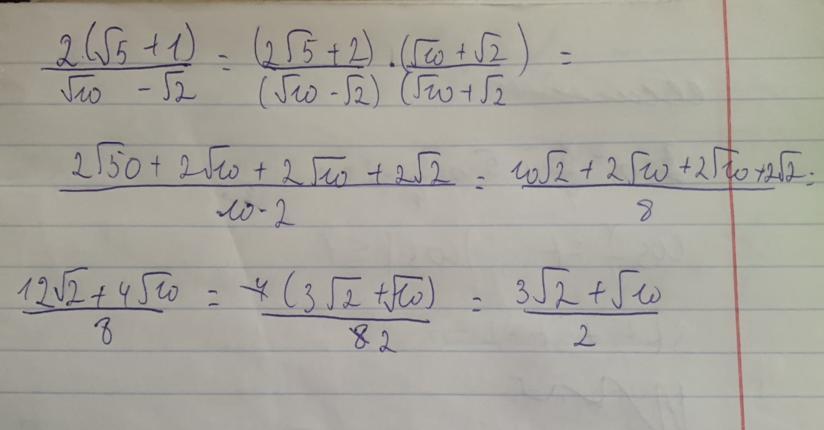 2·(√5 + 1)/(√10 - √2) = (2√5 + 2)/(√10 - √2) · (√10 + √2)/(√10 + √2 =
(2√50 + 2√10 + 2√10 + 2√2)/(10 - 2) = (10√2 + 2√10 + 2√10 + 2√2)/8 =
(12√2 + 4√10)/8 = 4(3√2 + √10)/8 2 = (3√2 + √10)/2